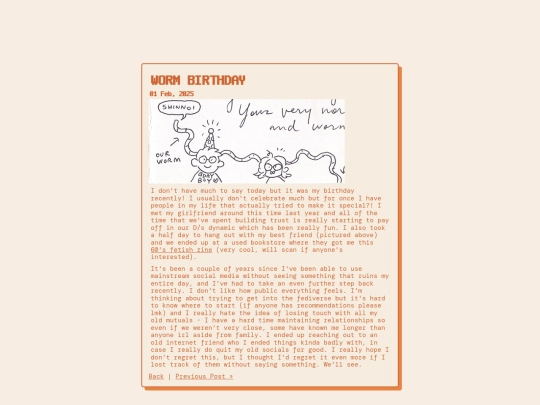 WORM BIRTHDAY
01 Feb, 2025
SHINNO!
Your very
and worm
OUR
WORM
BDAY
BOY
I don't have much to say today but it was my birthday
recently! I usually don't celebrate much but for once I have
people in my life that actually tried to make it special?! I
met my girlfriend around this time last year and all of the
time that we've spent building trust is really starting to pay
off in our D/s dynamic which has been really fun. I also took
a half day to hang out with my best friend (pictured above)
and we ended up at a used bookstore where they got me this
60's fetish zine (very cool, will scan if anyone's
interested).
It's been a couple of years since I've been able to use
mainstream social media without seeing something that ruins my
entire day, and I've had to take an even further step back
recently. I don't like how public everything feels. I'm
thinking about trying to get into the fediverse but it's hard
to know where to start (if anyone has recommendations please
lmk) and I really hate the idea of losing touch with all my
old mutuals - I have a hard time maintaining relationships so
even if we weren't very close, some have known me longer than
anyone irl aside from family. I ended up reaching out to an
old internet friend who I ended things kinda badly with, in
case I really do quit my old socials for good. I really hope I
don't regret this, but I thought I'd regret it even more if I
lost track of them without saying something. We'll see.
Back | Previous Post »